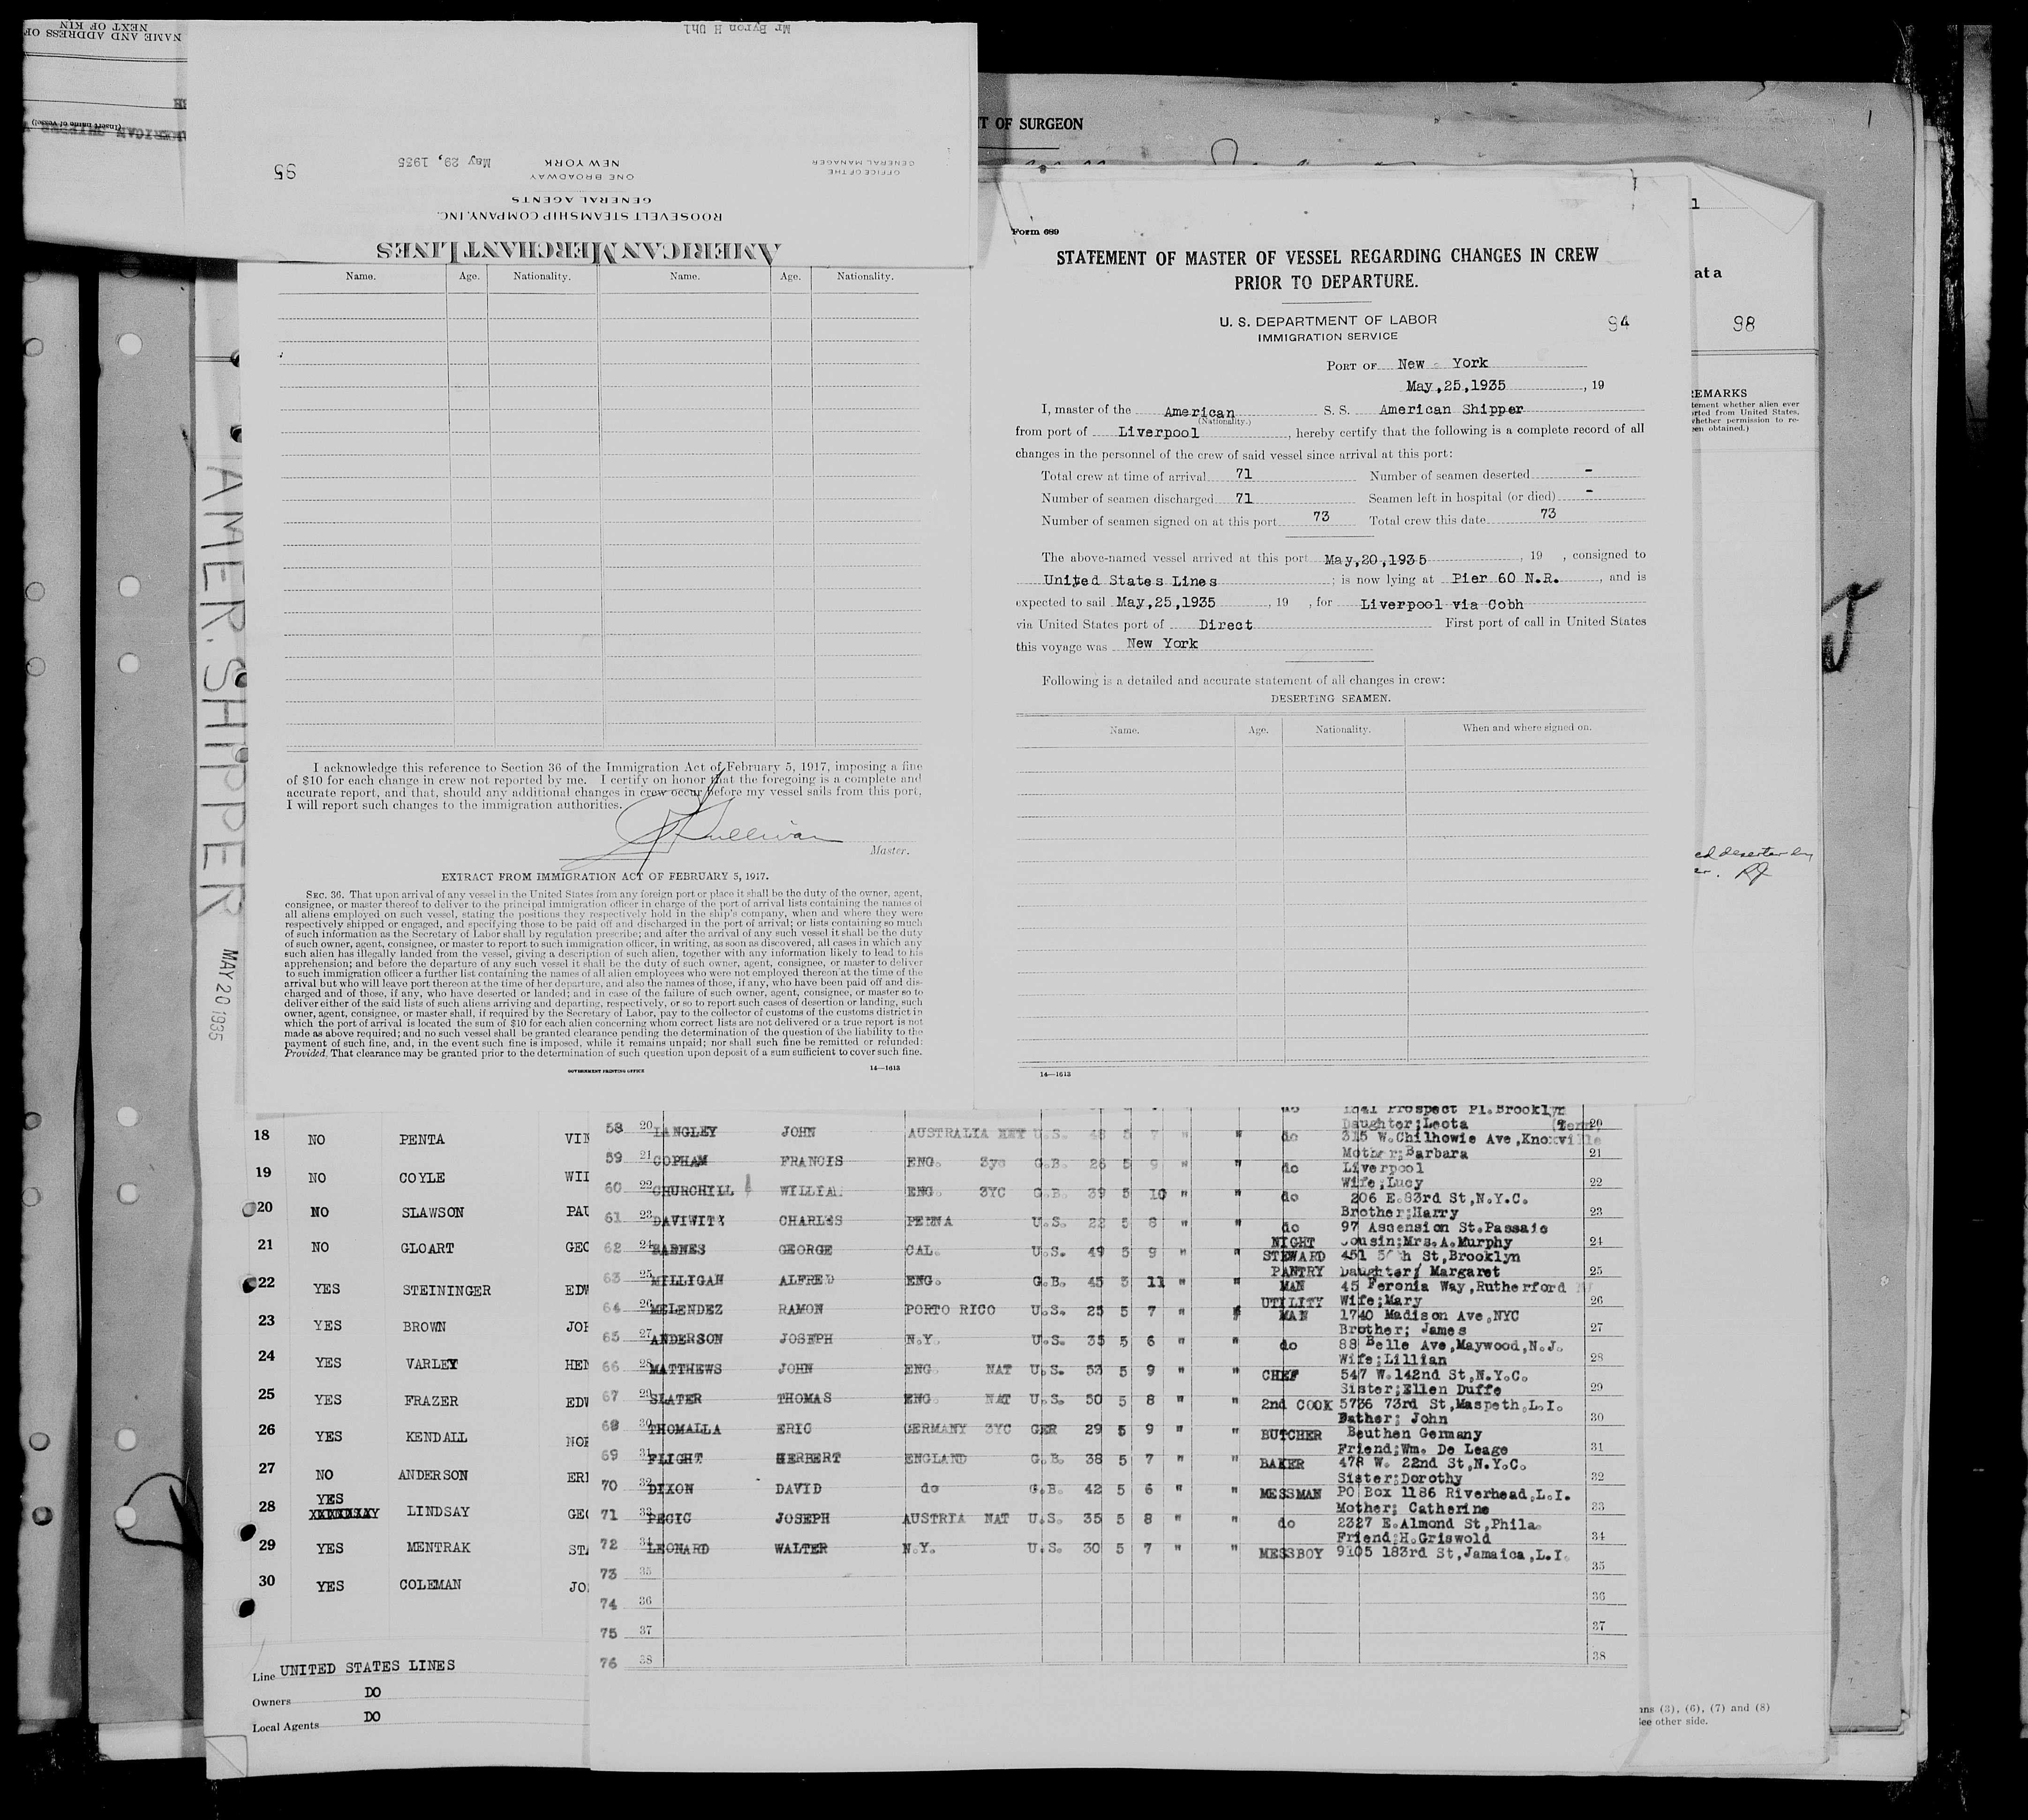 NAME AND ADDRESS OF
NEXT OF KIN
(Insert name of vessel)
AMERICAN SHIPPER
Mr Byron H Uhl
95
May 29, 1935
OFFICE OF THE
GENERAL MANAGER
AMERICAN MERCHANT LINES
ROOSEVELT STEAMSHIP COMPANY, INC.
GENERAL AGENTS
ONE BROADWAY
NEW YORK
Name. Age. Nationality. Name. Age. Nationality.
I acknowledge this reference to Section 36 of the Immigration Act of February 5, 1917, imposing a fine
of $10 for each change in crew not reported by me. I certify on honor that the foregoing is a complete and
accurate report, and that, should any additional changes in crew occur before my vessel sails from this port,
I will report such changes to the immigration authorities.
Sullivan
Master.
EXTRACT FROM IMMIGRATION ACT OF FEBRUARY 5, 1917.
SEC. 36. That upon arrival of any vessel in the United States from any foreign port or place it shall be the duty of the owner, agent,
consignee, or master thereof to deliver to the principal immigration officer in charge of the port of arrival lists containing the names of
all aliens employed on such vessel, stating the positions they respectively hold in the ship's company, when and where they were
respectively shipped or engaged, and specifying those to be paid off and discharged in the port of arrival; or lists containing so much
of such information as the Secretary of Labor shall by regulation prescribe; and after the arrival of any such vessel it shall be the duty
of such owner, agent, consignee, or master to report to such immigration officer, in writing, as soon as discovered, all cases in which any
such alien has illegally landed from the vessel, giving a description of such alien, together with any information likely to lead to his
apprehension; and before the departure of any such vessel it shall be the duty of such owner, agent, consignee, or master to deliver
to such immigration officer a further list containing the names of all alien employees who were not employed thereon at the time of the
arrival but who will leave port thereon at the time of her departure, and also the names of those, if any, who have been paid off and dis-
charged and of those, if any, who have deserted or landed; and in case of the failure of such owner, agent, consignee, or master so to
deliver either of the said lists of such aliens arriving and departing, respectively, or so to report such cases of desertion or landing, such
owner, agent, consignee, or master shall, if required by the Secretary of Labor, pay to the collector of customs of the customs district in
which the port of arrival is located the sum of $10 for each alien concerning whom correct lists are not delivered or a true report is not
made as above required; and no such vessel shall be granted clearance pending the determination of the question of the liability to the
payment of such fine, and, in the event such fine is imposed, while it remains unpaid; nor shall such fine be remitted or refunded:
Provided, That clearance may be granted prior to the determination of such question upon deposit of a sum sufficient to cover such fine.
GOVERNMENT PRINTING OFFICE 14—1613
AMER. SHIPPER MAY 20 1935
T OF SURGEON
1
Form 689
STATEMENT OF MASTER OF VESSEL REGARDING CHANGES IN CREW
PRIOR TO DEPARTURE.
U. S. DEPARTMENT OF LABOR
IMMIGRATION SERVICE
94
PORT OF New York
May,25,1935, 19
I, master of the American S. S. American Shipper
(Nationality.)
from port of Liverpool, hereby certify that the following is a complete record of all
changes in the personnel of the crew of said vessel since arrival at this port:
Total crew at time of arrival 71 Number of seamen deserted -
Number of seamen discharged 71 Seamen left in hospital (or died) -
Number of seamen signed on at this port 73 Total crew this date 73
The above-named vessel arrived at this port May,20,1935, 19 , consigned to
United States Lines; is now lying at Pier 60 N.R., and is
expected to sail May,25,1935, 19 , for Liverpool via Cobh
via United States port of Direct First port of call in United States
this voyage was New York
Following is a detailed and accurate statement of all changes in crew:
DESERTING SEAMEN.
Name. Age. Nationality. When and where signed on.
14—1613
1
ata
98
REMARKS
tement whether alien ever
rted from United States,
whether permission to re-
een obtained.)
ed deserter by
er.
18 NO PENTA VIN
19 NO COYLE WIL
20 NO SLAWSON PAU
21 NO GLOART GEO
22 YES STEININGER EDW
23 YES BROWN JOH
24 YES VARLEY HEN
25 YES FRAZER EDW
26 YES KENDALL NOR
27 NO ANDERSON ERI
28 YES LINDSAY GEO
29 YES MENTRAK STA
30 YES COLEMAN JO
Line UNITED STATES LINES
Owners DO
Local Agents DO
do 1241 Prospect Pl.Brooklyn
Daughter;Leota (Tenn 20
58 20 LANGLEY JOHN AUSTRALIA U.S. 5 7 " " do 315 W.Chilhowie Ave,Knoxville
Mother;Barbara 21
59 21 COPHAM FRANCIS ENG. 3yc G.B. 26 5 9 " " do Liverpool
Wife;Lucy 22
60 22 CHURCHILL WILLIAM ENG. 3YC G.B. 39 5 10 " " do 206 E.83rd St,N.Y.C.
Brother;Harry 23
61 23 DAVIWITX CHARLES PENNA U.S. 22 5 8 " " do 97 Ascension St.Passaic
NIGHT Cousin;Mrs.A.Murphy 24
62 24 BARNES GEORGE CAL. U.S. 49 5 9 " " STEWARD 451 St,Brooklyn
PANTRY Daughter; Margaret 25
63 25 MILLIGAN ALFRED ENG. G.B. 45 5 11 " " MAN 45 Feronia Way,Rutherford NJ
UTILITY Wife;Mary 26
64 26 MELENDEZ RAMON PORTO RICO U.S. 25 5 7 " " MAN 1740 Madison Ave,NYC
Brother; James 27
65 27 ANDERSON JOSEPH N.Y. U.S. 35 5 6 " " do 88 Belle Ave,Maywood,N.J.
Wife;Lillian 28
66 28 MATTHEWS JOHN ENG NAT U.S. 53 5 9 " " CHEF 547 W.142nd St,N.Y.C.
Sister;Ellen Duffe 29
67 29 SLATER THOMAS ENG. NAT U.S. 50 5 8 " " 2nd COOK 5736 73rd St,Maspeth,L.I.
Father; John 30
68 30 THOMALLA ERIC GERMANY 3YC GER 29 5 9 " " BUTCHER Beuthen Germany
Friend;Wm. De Leage 31
69 31 FLIGHT HERBERT ENGLAND G.B. 38 5 7 " " BAKER 478 W. 22nd St,N.Y.C.
Sister;Dorothy 32
70 32 DIXON DAVID do G.B. 42 5 6 " " MESSMAN PO Box 1186 Riverhead,L.I.
Mother; Catherine 33
71 33 PECIC JOSEPH AUSTRIA NAT U.S. 35 5 8 " " do 2327 E.Almond St,Phila.
Friend;H.Griswold 34
72 34 LEONARD WALTER N.Y. U.S. 30 5 7 " " MESSBOY 9105 183rd St,Jamaica,L.I.
73 35 35
74 36 36
75 37 37
76 38 38
nns (3), (6), (7) and (8)
See other side.